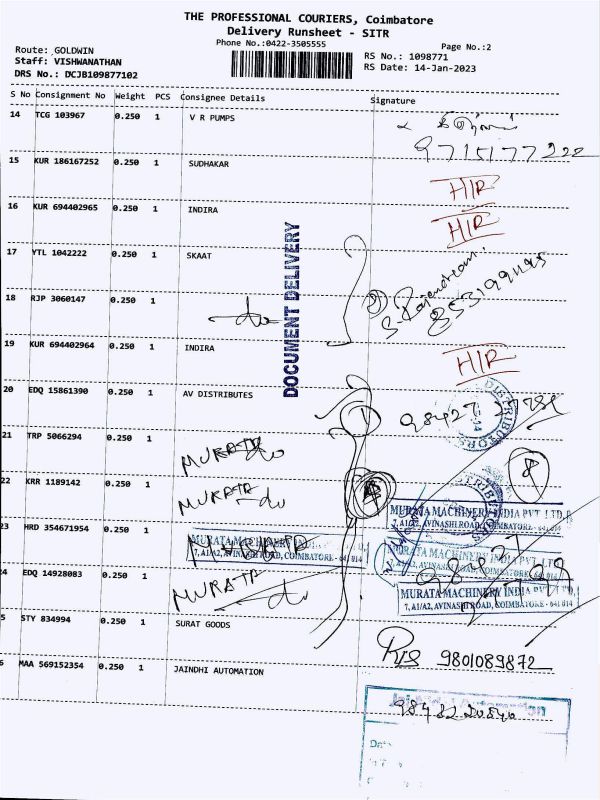 THE PROFESSIONAL COURIERS, Coimbatore
Delivery Runsheet - SITR
Phone No.:0422-3505555
Page No.:2
Route: GOLDWIN
Staff: VISHWANATHAN
DRS No.: DCJB109877102
RS No.: 1098771
RS Date: 14-Jan-2023
S No Consignment No Weight PCS Consignee Details Signature
14 TCG 103967 0.250 1 V R PUMPS
9715177222
15 KUR 186167252 0.250 1 SUDHAKAR
H/R
16 KUR 694402965 0.250 1 INDIRA
H/R
17 YTL 1042222 0.250 1 SKAAT
DOCUMENT DELIVERY
S. Rajendran.
18 RJP 3060147 0.250 1 do
19 KUR 694402964 0.250 1 INDIRA
H/R
20 EDQ 15861390 0.250 1 AV DISTRIBUTES
DISTRIBUTORS
21 TRP 5066294 0.250 1 MURATA do
22 KRR 1189142 0.250 1 MURATA do
MURATA MACHINERY INDIA PVT. LTD.
7, A1/A2, AVINASHI ROAD, COIMBATORE - 641 014
23 HRD 354671954 0.250 1
MURATA MACHINERY INDIA
7, A1/A2, AVINASHI ROAD, COIMBATORE - 641 014
MURATA MACHINERY INDIA PVT. LTD.
7, A1/A2, AVINASHI ROAD, COIMBATORE
24 EDQ 14928083 0.250 1 MURATA do
MURATA MACHINERY INDIA PVT. LTD.
7, A1/A2, AVINASHI ROAD, COIMBATORE - 641 014
5 STY 834994 0.250 1 SURAT GOODS
9801089872
6 MAA 569152354 0.250 1 JAINDHI AUTOMATION
Date